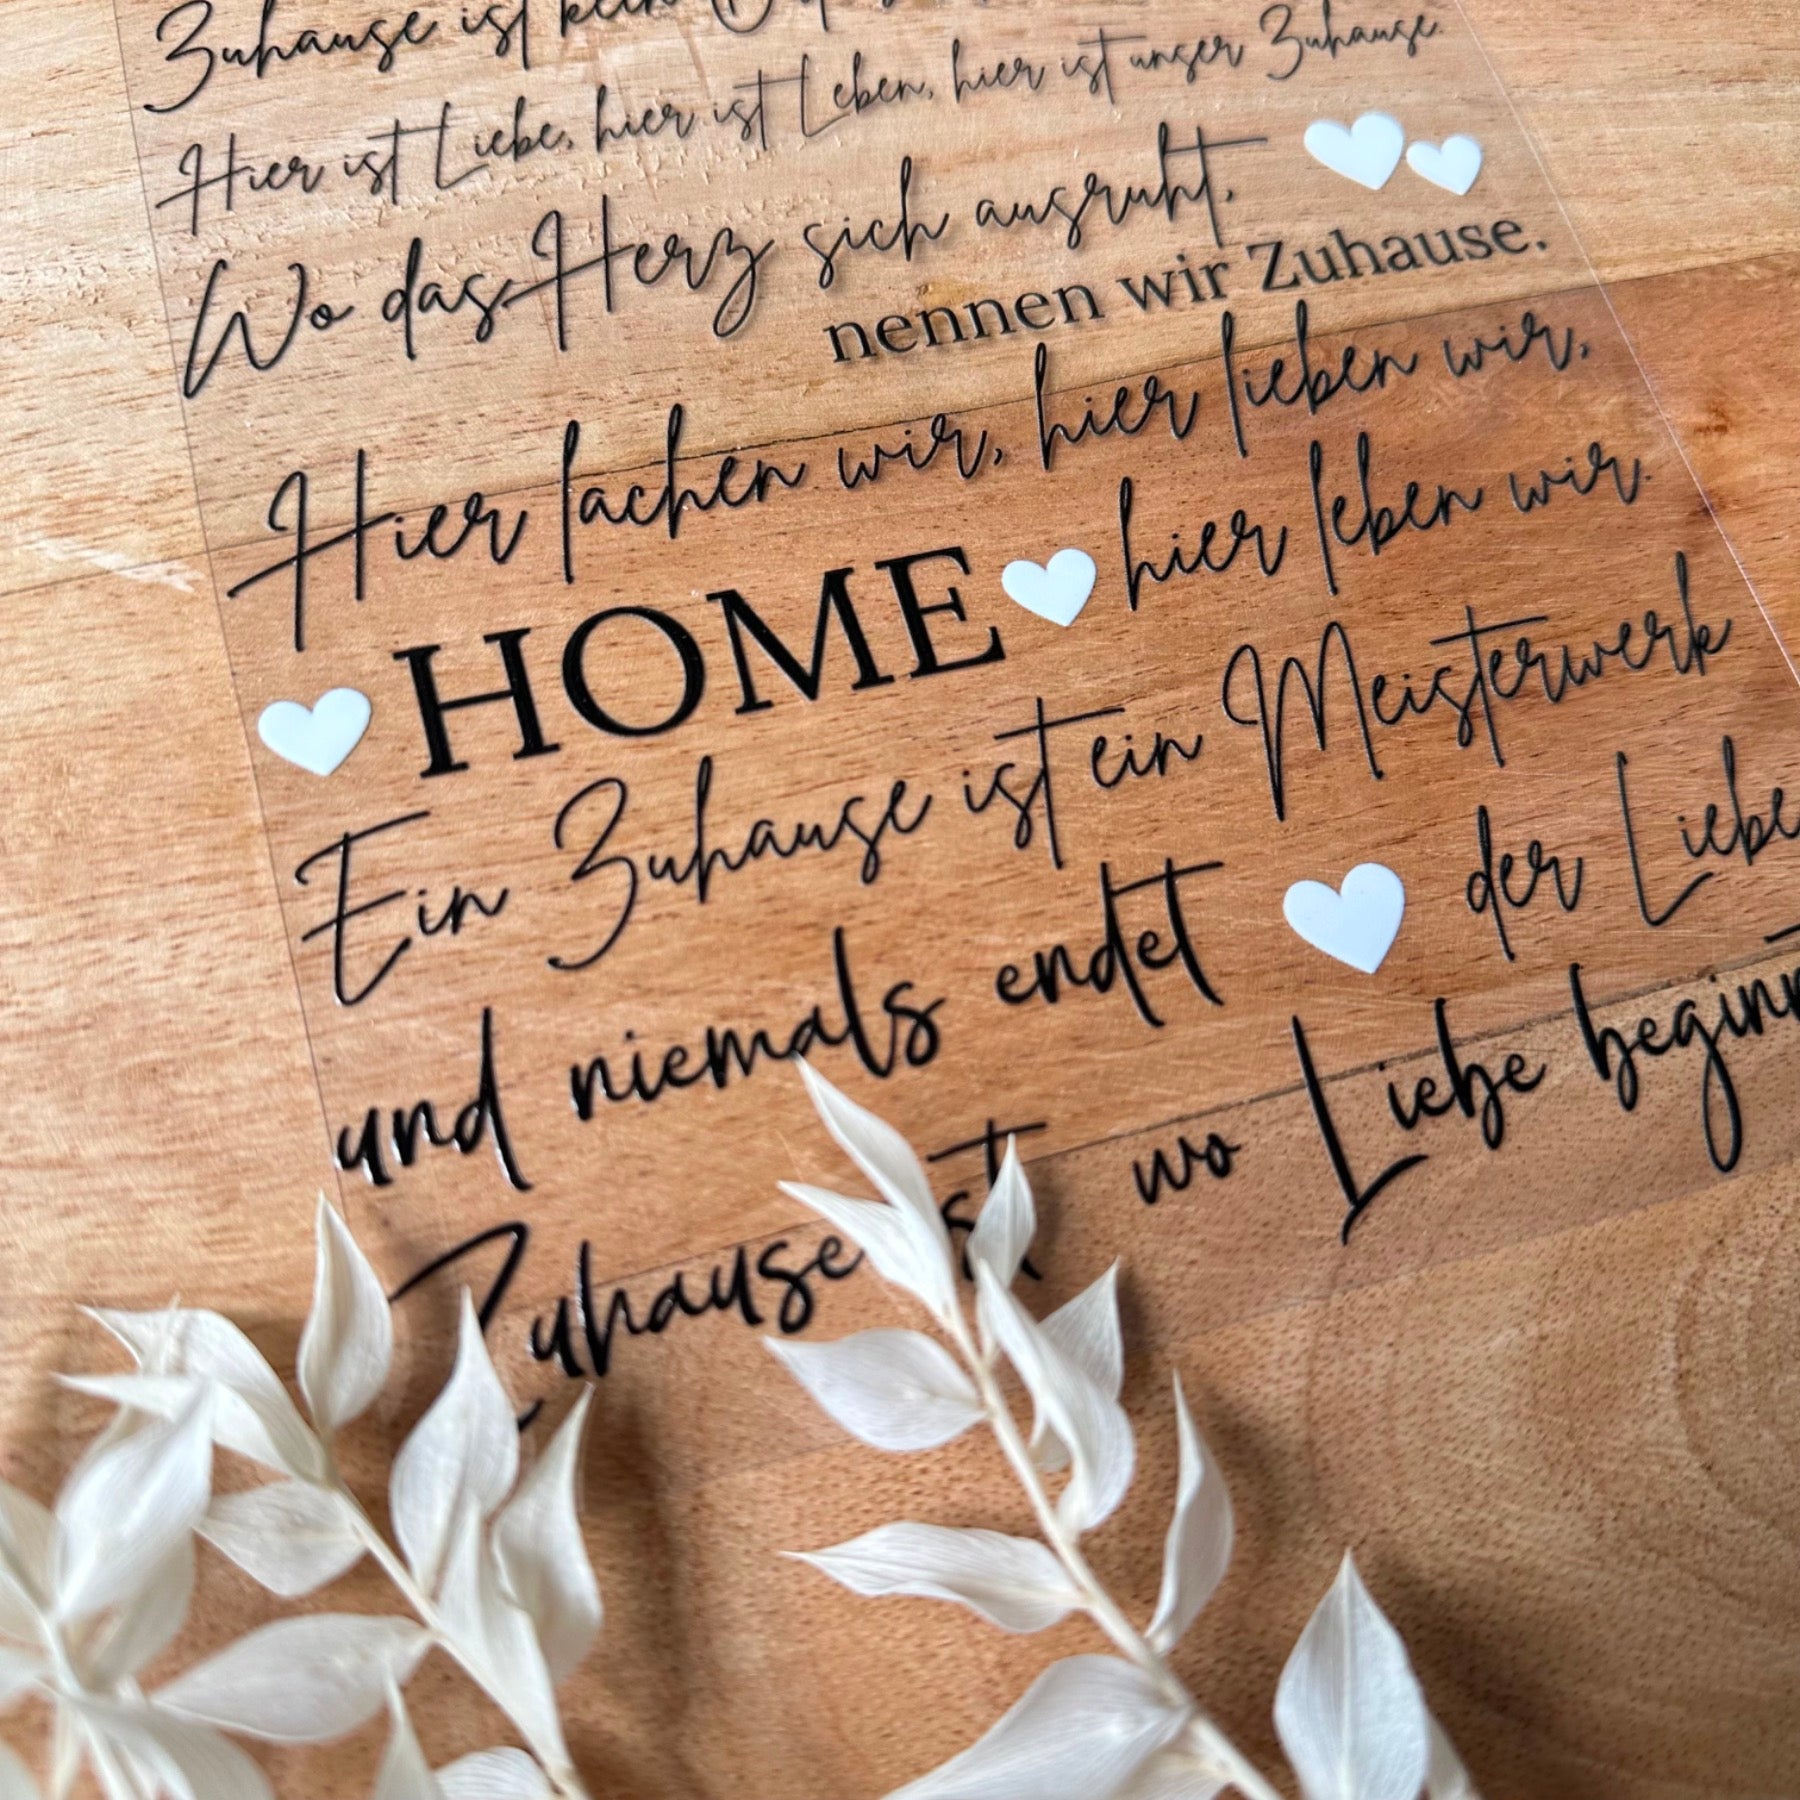 Zuhause ist kein
Hier ist Liebe, hier ist Leben, hier ist unser Zuhause.
Wo das Herz sich ausruht,
nennen wir Zuhause.
Hier lachen wir, hier lieben wir,
HOME hier leben wir.
Ein Zuhause ist ein Meisterwerk
der Liebe
und niemals endet
Zuhause ist wo Liebe beginnt